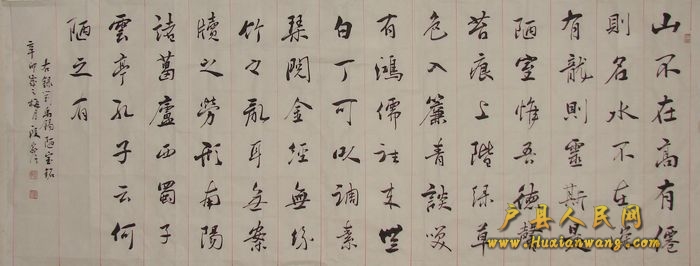 山不在高有僊
則名水不在深
有龍則靈斯是
陋室惟吾德馨
苔痕上階綠草
色入簾青談笑
有鴻儒往来無
白丁可以調素
琴閱金經無絲
竹之亂耳無案
牘之勞形南陽
諸葛廬西蜀子
雲亭孔子云何
陋之有
右錄劉禹錫陋室銘
辛卯歲之梅月段
户县人民网
www.Huxianwang.com